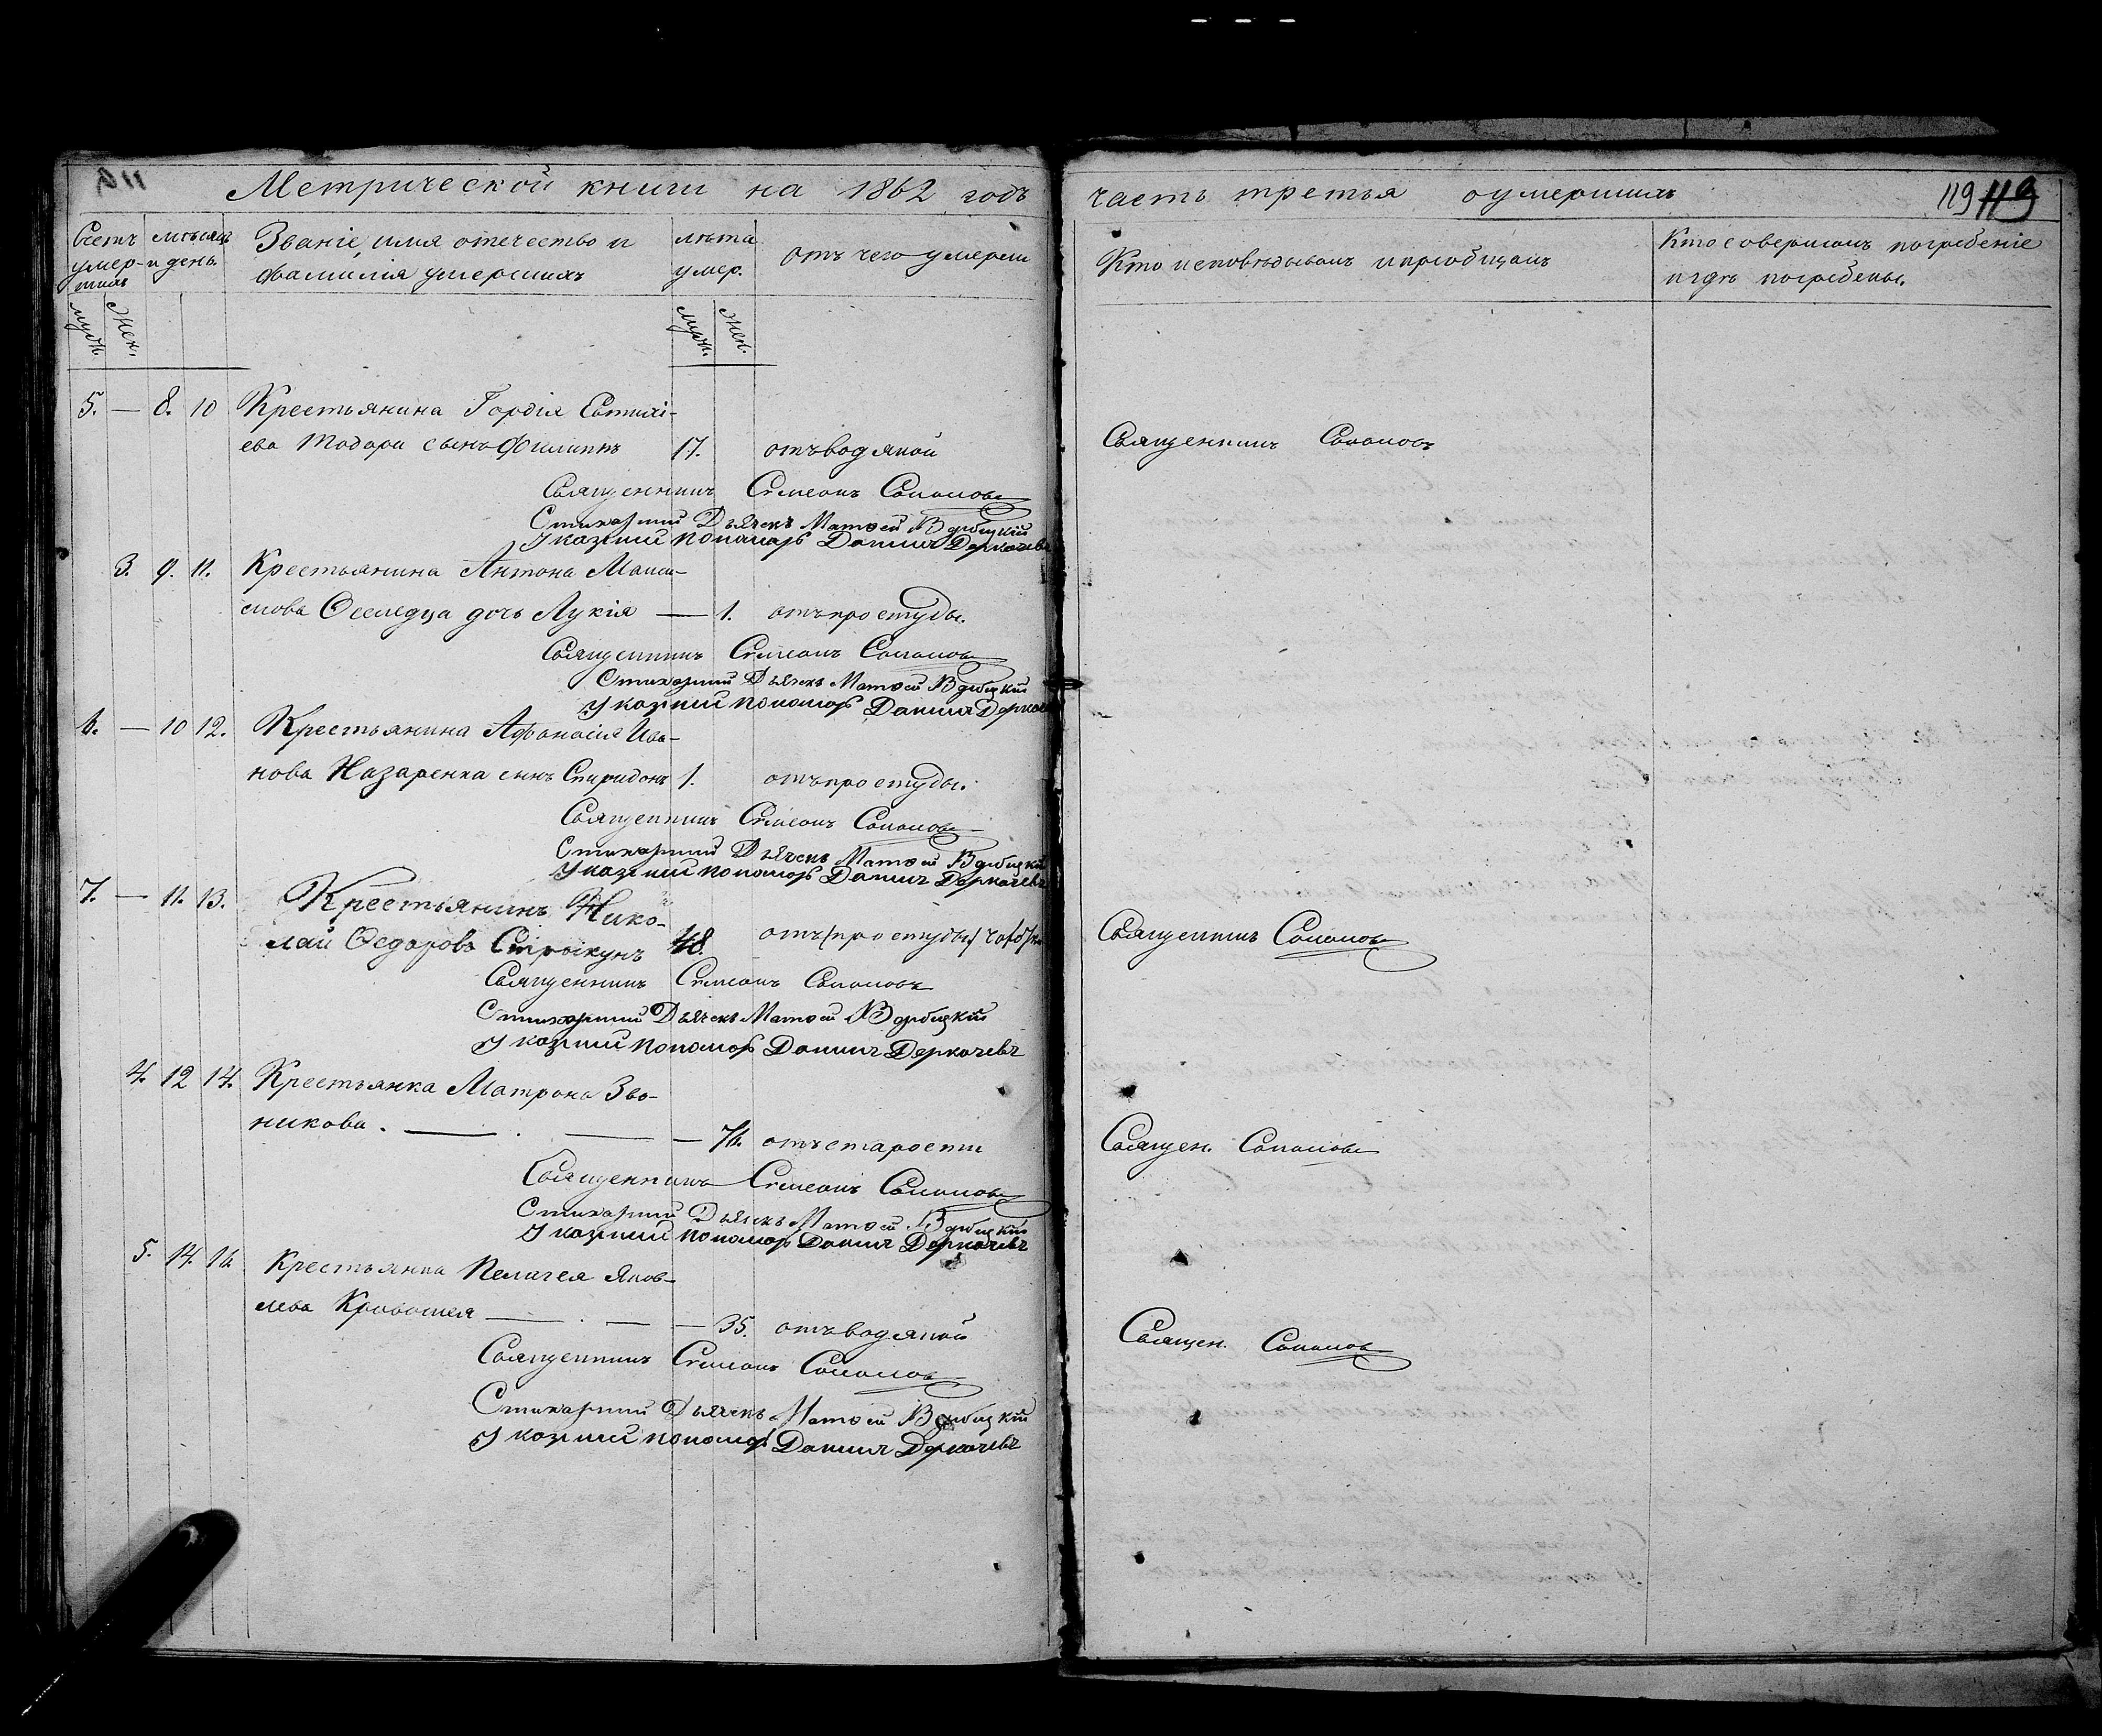 Метрической книги на 1862 годъ
часть третья о умершихъ
119 119
Счетъ умер-шихъ
мѣсяцъ и день.
Званіе, имя отечество и
фамилія умершихъ
лѣта
умер.
отъ чего умерли
Кто исповѣдывалъ и пріобщалъ
Кто совершалъ погребеніе
и гдѣ погребены.
муж. жен. муж. жен.
5. — 8. 10 Крестьянина Гордія Евтихі-
ева Тодори сынъ Филиппъ 17. отъ водяной
Священникъ
Священникъ Симеонъ
Стихарный Дьячекъ Матѳей Вербицкій
Указный пономарь Даніилъ Деркачевъ
3. 9. 11. Крестьянина Антона Макси-
мова Оселедца дочь Лукія — 1. отъ простуды.
Священникъ Симеонъ
Стихарный Дьячекъ Матѳей Вербицкій
Указный пономарь Даніилъ
6. — 10 12. Крестьянина Афанасія Ива-
нова Назаренка сынъ Спиридонъ 1. отъ простуды.
Священникъ Симеонъ
Стихарный Дьячекъ Матѳей Вербицкій
Указный пономарь Даніилъ Деркачевъ
7. — 11. 13. Крестьянинъ Нико-
лай Ѳедоровъ 48. отъ простуды
Священникъ
Священникъ Симеонъ
Стихарный Дьячекъ Матѳей Вербицкій
Указный пономарь Даніилъ Деркачевъ
4. 12 14. Крестьянка Матрона Зво-
никова. — — — 76. отъ старости
Священ.
Священникъ Симеонъ
Стихарный Дьячекъ Матѳей Вербицкій
Указный пономарь Даніилъ Деркачевъ
5. 14. 16. Крестьянка Пелагея Яков-
лева Кривошея — — — 35. отъ водяной
Священ.
Священникъ Симеонъ
Стихарный Дьячекъ Матѳей Вербицкій
Указный пономарь Даніилъ Деркачевъ